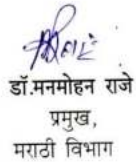 डॉ.मनमोहन राजे
प्रमुख,
मराठी विभाग